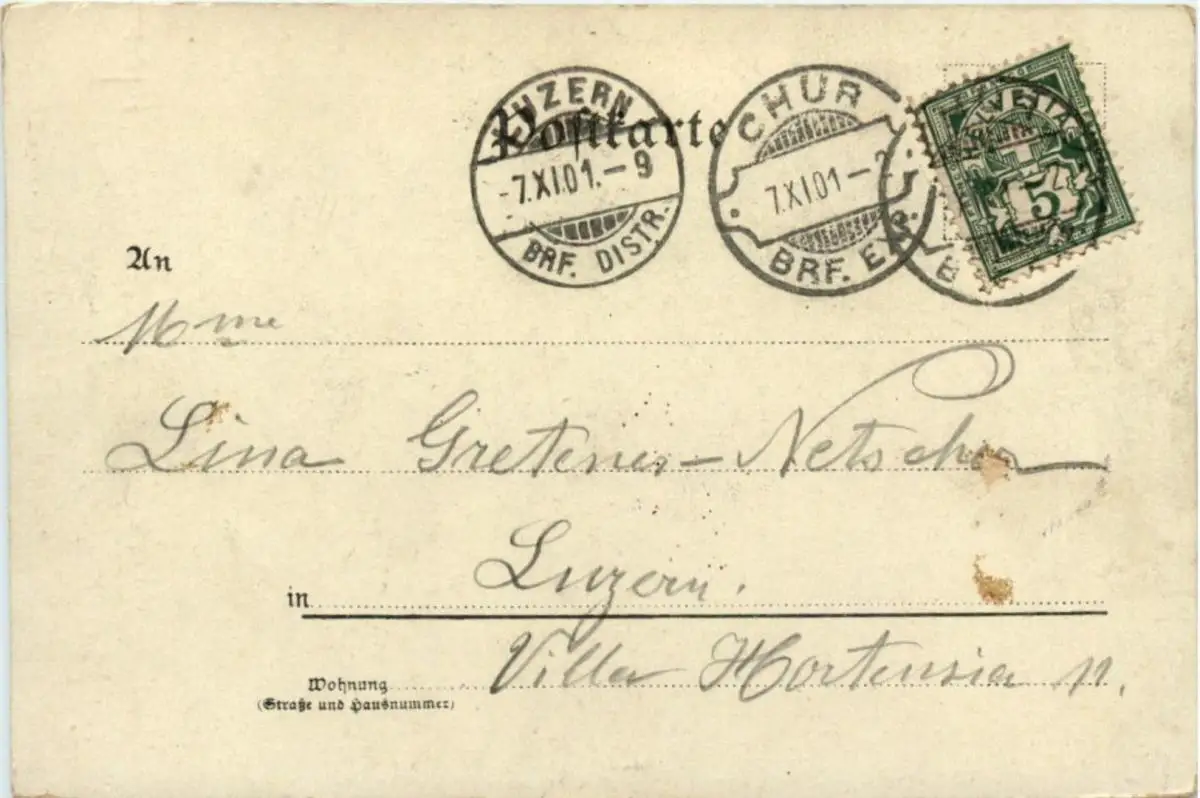 Postkarte
LUZERN
-7.XI.01.-9
BRF. DISTR.
CHUR
7.XI.01-2
BRF. EX.
HELVETIA
5
An
Mme
Lina Gretener-Netscher
in Luzern.
Villa Hortensia
Wohnung
(Straße und Hausnummer)